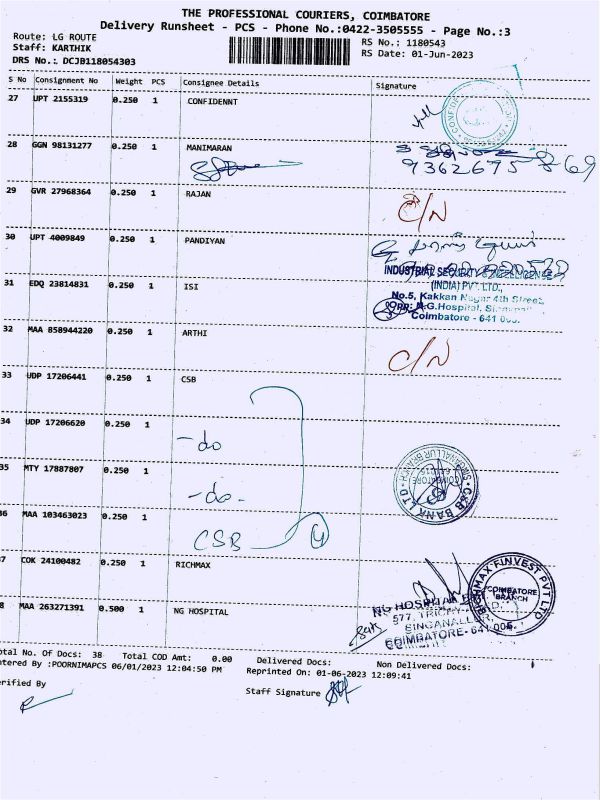 THE PROFESSIONAL COURIERS, COIMBATORE
Delivery Runsheet - PCS - Phone No.:0422-3505555 - Page No.:3
Route: LG ROUTE
RS No.: 1180543
Staff: KARTHIK
RS Date: 01-Jun-2023
DRS No.: DCJB118054303
S No Consignment No Weight PCS Consignee Details Signature
27 UPT 2155319 0.250 1 CONFIDENNT
28 GGN 98131277 0.250 1 MANIMARAN
29 GVR 27968364 0.250 1 RAJAN C/N
30 UPT 4009849 0.250 1 PANDIYAN
31 EDQ 23814831 0.250 1 ISI
INDUSTRIAL SECURITY & INTELLIGENCE
(INDIA) PVT. LTD.,
No.5, Kakkan Nagar 4th Street,
Opp: N.G.Hospital,
Coimbatore - 641
32 MAA 858944220 0.250 1 ARTHI C/N
33 UDP 17206441 0.250 1 CSB
34 UDP 17206620 0.250 1 -do
35 MTY 17887807 0.250 1 -do-
CSB BANK LTD
SINGANALLUR BRANCH
COIMBATORE
36 MAA 103463023 0.250 1 CSB 4
37 COK 24100482 0.250 1 RICHMAX
RICHMAX FINVEST PVT LTD
COIMBATORE
BRANCH
38 MAA 263271391 0.500 1 NG HOSPITAL
NG HOSPITAL
577, TRICHY
SINGANALLUR,
COIMBATORE-641 005.
otal No. Of Docs: 38 Total COD Amt: 0.00 Delivered Docs: Non Delivered Docs:
ntered By :POORNIMAPCS 06/01/2023 12:04:50 PM Reprinted On: 01-06-2023 12:09:41
erified By
Staff Signature